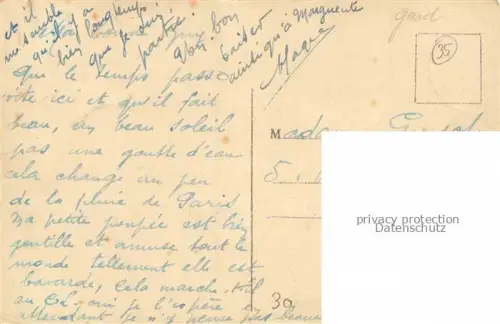 et il
me semble
qu'il y a
bien longtemps
que je suis
partie.
Un bon
baiser
ainsi qu'à Marguerite
Que le temps passe
vite ici et qu'il fait
beau, un beau soleil
pas une goutte d'eau
cela change un peu
de la pluie de Paris
Ma petite poupée est bien
gentille et amuse tout le
monde tellement elle est
bavarde, cela marche
je l'espère
je n'y pense pas
gard
35
Madame
5,
30
privacy protection
Datenschutz